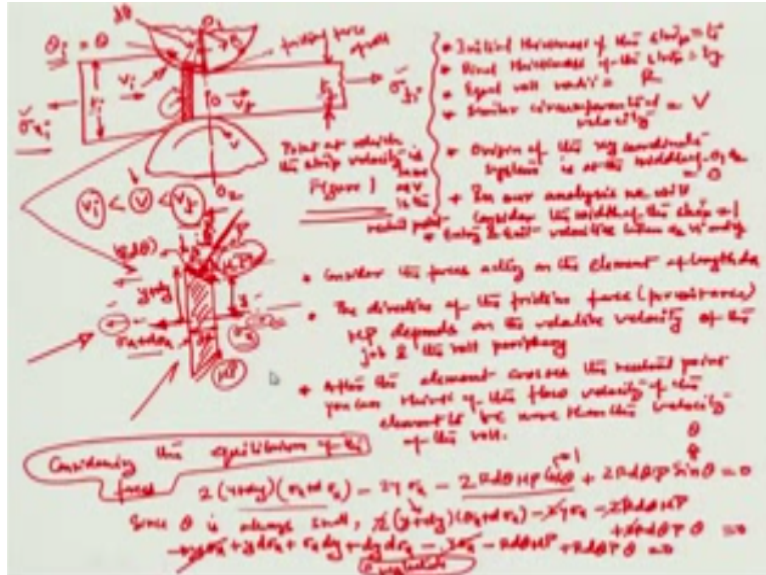 θi = θ
friction force
Vi
Vf
Point at which
the strip velocity is
Figure 1
Vi < V < Vf
neutral point
* Initial thickness of the strip = ti
* Final thickness of the strip = tf
* Equal roll radii = R
* Similar circumferential velocity = V
* Origin of the xy coordinate
system is at the middle of O1 O2
= 0
* In our analysis we will
consider the width of the strip = 1
* Entry & exit velocities
* Consider the forces acting on the element of length dx
* The direction of the friction force (per unit area)
μP depends on the relative velocity of the
job & the roll periphery
* After the element crosses the neutral point
you can think of the flow velocity of the
element to be more than the velocity
of the roll.
y+dy
y
σx+dσx
σx
μP
Considering the equilibrium of the
forces
2(y+dy)(σx+dσx) - 2yσx - 2Rdθ μP cosθ + 2RdθP sinθ = 0
Since θ is always small, 2(y+dy)(σx+dσx) - 2yσx - 2RdθμP
+ 2RdθP θ = 0
yσx + ydσx + σxdy + dydσx - yσx - RdθμP + RdθPθ = 0
neglected